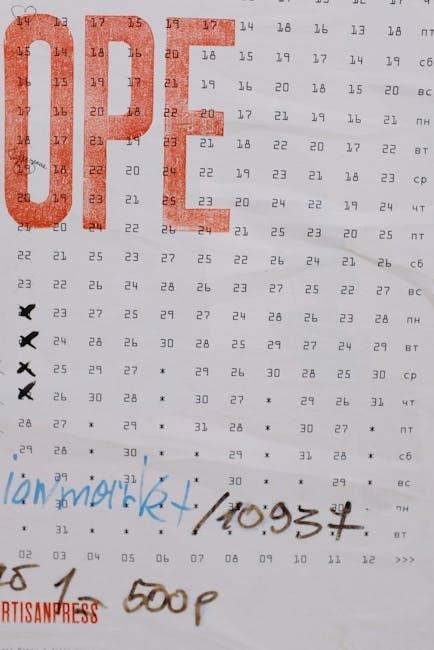 OPE
14 13 17 15 19 17 14 18 16 13 18 пт
15 14 18 16 20 18 15 19 17 14 19 сб
16 15 19 17 21 19 16 20 18 15 20 вс
17 16 20 18 22 20 17 21 19 16 21 пн
18 17 21 19 23 21 18 22 20 17 22 вт
19 18 22 20 24 22 19 23 21 18 23 ср
20 19 23 21 25 23 20 24 22 19 24 чт
21 20 24 22 26 24 21 25 23 20 25 пт
22 21 25 23 27 25 22 26 24 21 26 сб
23 22 26 24 28 26 23 27 25 22 27 вс
23 27 25 29 27 24 28 26 23 28 пн
24 28 26 30 28 25 29 27 24 29 вт
25 29 27 * 29 26 30 28 25 30 ср
26 30 28 * 30 27 * 29 26 31 чт
28 27 * 29 * 31 28 * 30 27 * пт
29 28 * 30 * * 29 * 31 28 * сб
* 29 * 31 * * 30 * * 29 * вс
пн
ionmarkt /10937
* 31 * * * * * * * * * вт
02 03 04 05 06 07 08 09 10 11 12 >>>
1_ 500р
RTISANPRESS